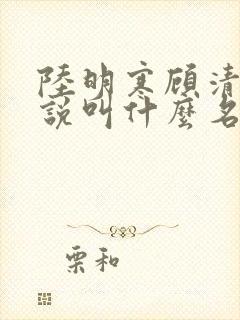 陸明寒顾清
說叫什麼名
栗和